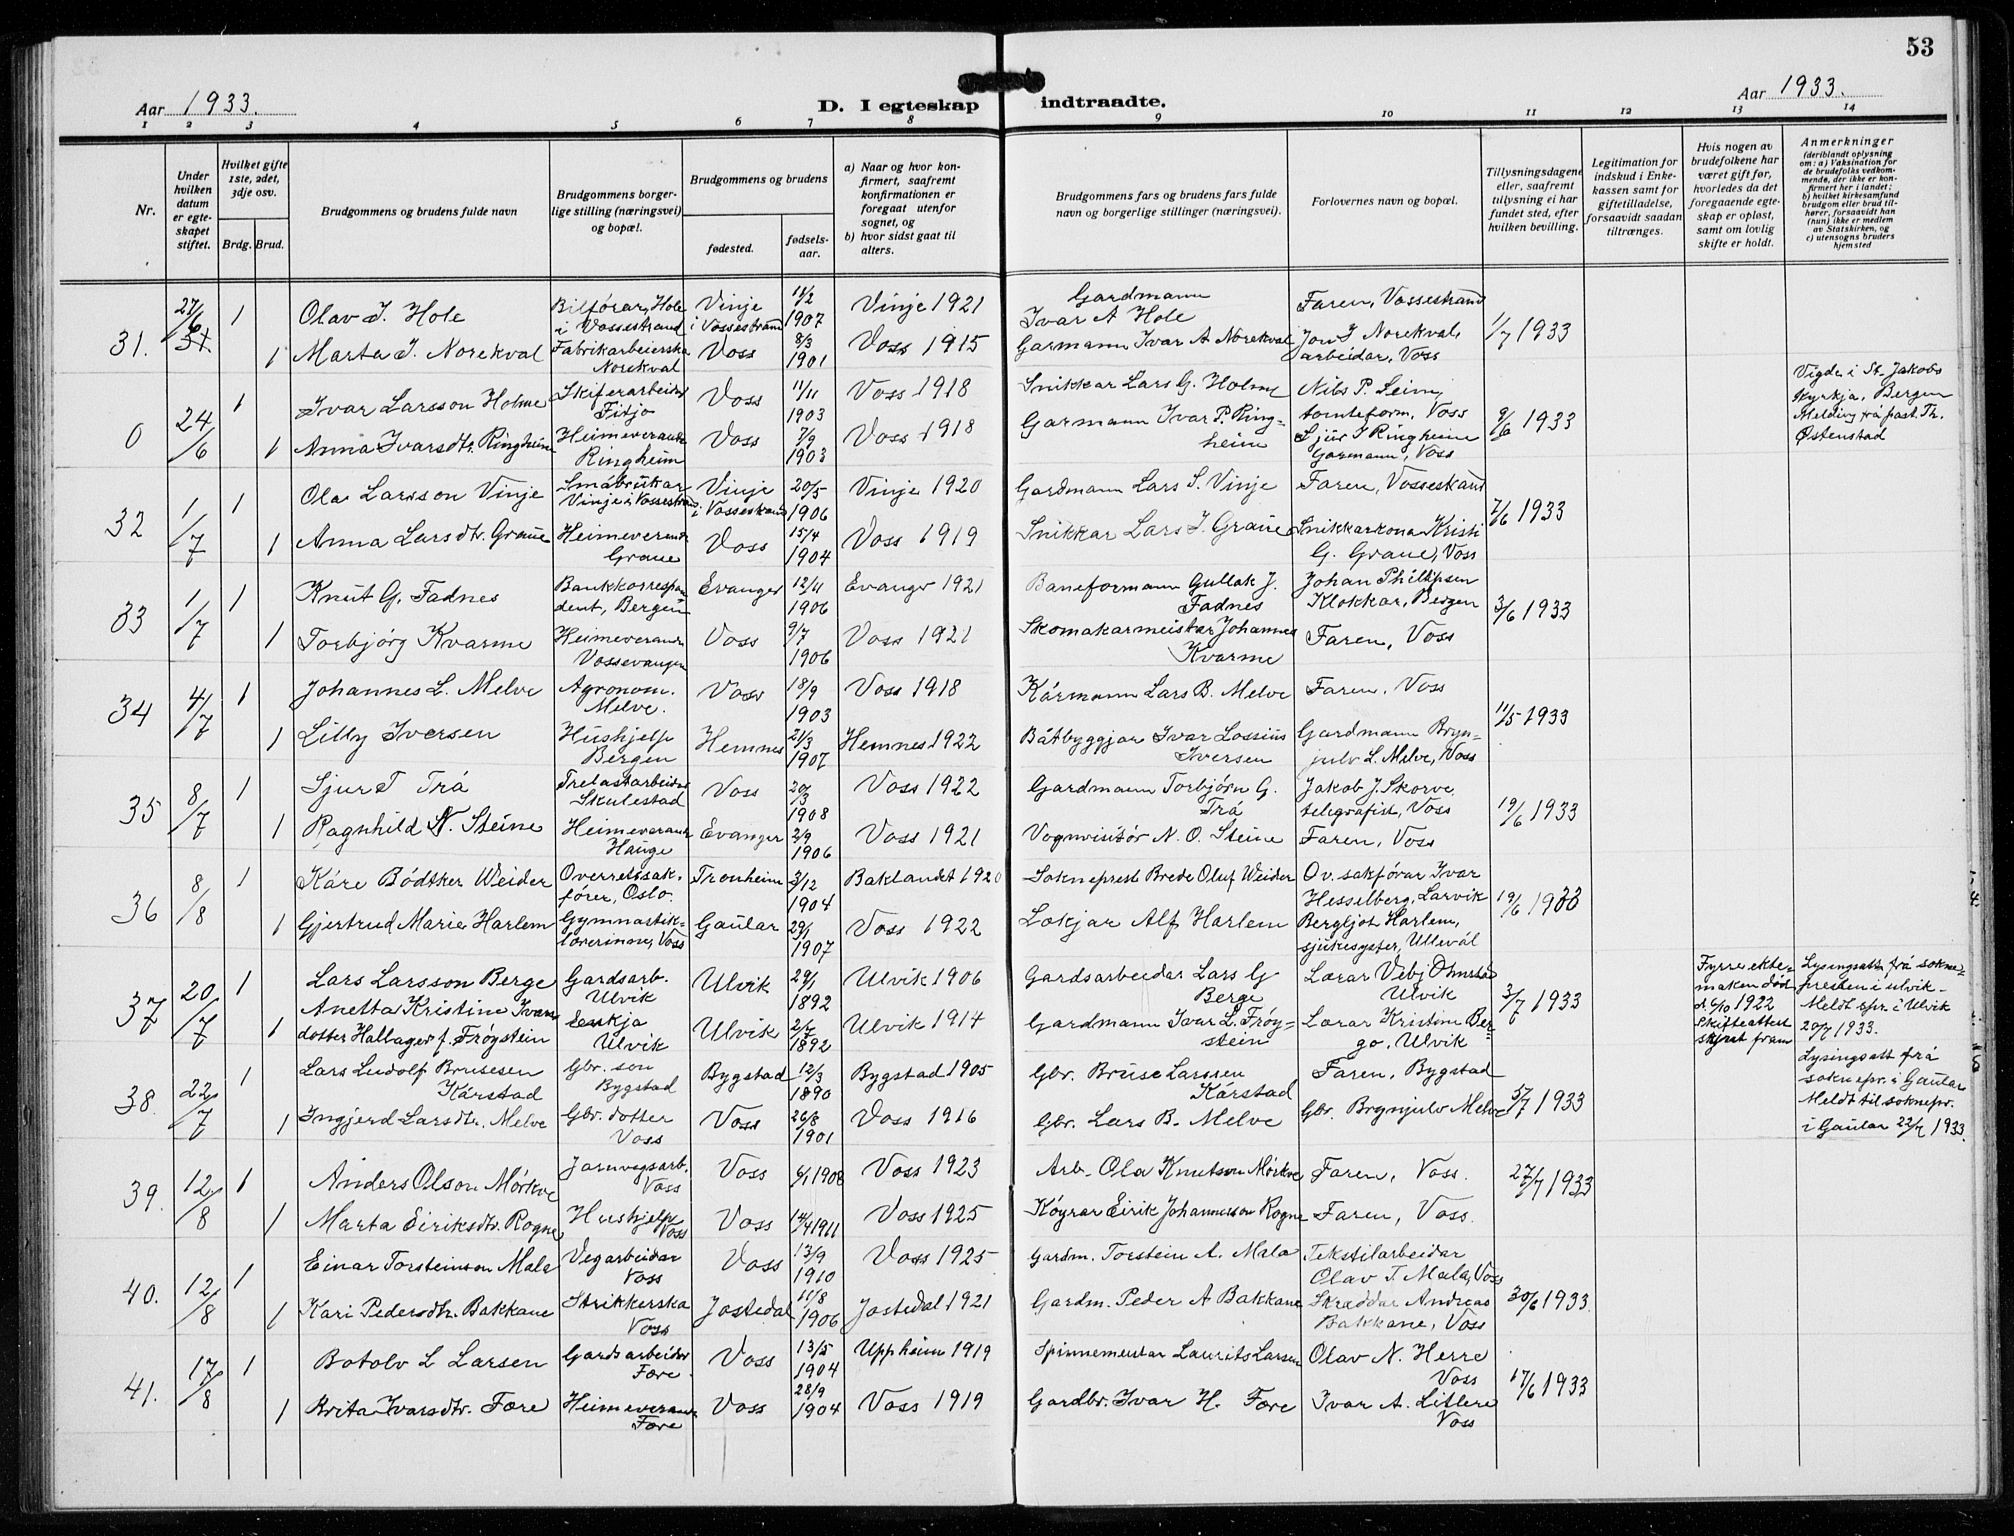 53
Aar 1933.
D. I egteskap indtraadte.
Aar 1933.
1 2 3 4 5 6 7 8 9 10 11 12 13 14
Nr.
Under hvilken datum er egteskapet stiftet.
Hvilket gifte 1ste, 2det, 3dje osv.
Brdg. Brud.
Brudgommens og brudens fulde navn
Brudgommens borgerlige stilling (næringsvei) og bopæl.
Brudgommens og brudens
fødested.
fødselsaar.
a) Naar og hvor konfirmert, saafremt konfirmationen er foregaat utenfor sognet, og
b) hvor sidst gaat til alters.
Brudgommens fars og brudens fars fulde navn og borgerlige stillinger (næringsvei).
Forlovernes navn og bopæl.
Tillysningsdagene eller, saafremt tillysning ei har fundet sted, efter hvilken bevilling.
Legitimation for indskud i Enkekassen samt for giftetilladelse, forsaavidt saadan tiltrænges.
Hvis nogen av brudefolkene har været gift før, hvorledes da det foregaaende egteskap er opløst, samt om lovlig skifte er holdt.
Anmerkninger
(deriblandt oplysning om: a) Vaksination for de brudefolks vedkommende, der ikke er konfirmert her i landet; b) hvilket kirkesamfund brudgom eller brud tilhører, forsaavidt han (hun) ikke er medlem av Statskirken, og c) utensogns bruders hjemsted
31. 27/6 1 Olav I. Hole Bilførar, Hole i Vossestrand Vinje i Vossestrand 11/2 1907 Vinje 1921 Gardmann Ivar A Hole Faren, Vossestrand 1/7 1933
1 Marta I. Norekval Fabrikarbeierska Norekval Voss 8/3 1901 Voss 1915 Garmann Ivar A Norekval Jon I Norekval, arbeidar, Voss
0 24/6 1 Ivar Larsson Holme Skiferarbeidar Fitjo Voss 11/11 1903 Voss 1918 Snikkar Lars G. Holme Nils P. Leim, tomteform, Voss 9/6 1933 Vigde i St. Jakobs kyrkja, Bergen Melding frå past. Th. Østenstad
1 Anna Ivarsdtr. Ringheim Heimeverande Ringheim Voss 7/9 1903 Voss 1918 Garmann Ivar P. Ringheim Sjur I Ringheim Garmann, Voss
32 1/7 1 Ola Larsson Vinje Småbrukar Vinje i Vossestrand Vinje i Vossestrand 20/5 1906 Vinje 1920 Gardmann Lars S. Vinje Faren, Vossestrand 7/6 1933
1 Anna Larsdtr. Graue Heimeverande Graue Voss 15/4 1904 Voss 1919 Snikkar Lars I. Graue Snikkarkona Kristi G. Graue, Voss
33 1/7 1 Knut G. Fadnes Bankkorrespondent, Bergen Evanger 12/11 1906 Evanger 1921 Baneformann Gullak J. Fadnes Johan Philipsen Klokkar, Bergen 3/6 1933
1 Torbjørg Kvarme Heimeverande Vossevangen Voss 9/7 1906 Voss 1921 Skomakarmeister Johannes Kvarme Faren, Voss
34 4/7 1 Johannes L. Melve Agronom. Melve. Voss 18/9 1903 Voss 1918 Kårmann Lars B. Melve Faren, Voss 11/5 1933
1 Lilly Iversen Hushjelp Bergen Hemnes 21/3 1907 Hemnes 1922 Båtbyggjar Ivar Lossius Iversen Gardmann Brynjulv L. Melve, Voss
35 8/7 1 Sjur T Trå Trelastarbeidar Skulestad Voss 20/3 1908 Voss 1922 Gardmann Torbjørn G. Trå Jakob J. Skorve, telegrafist, Voss 19/6 1933
1 Ragnhild N. Steine Heimeverande Hauge Evanger 2/9 1906 Voss 1921 Vognvisitør N. O. Steine Faren, Voss
36 8/8 1 Kåre Bødtker Weider Overretssakfører, Oslo. Tronheim 3/12 1904 Baklandet 1920 Sokneprest Brede Oluf Weider Ov. sakførar Ivar Hesselberg, Larvik 19/6 1933
1 Gjertrud Marie Harlem Gymnastiklærerinne, Voss Gaular 29/1 1907 Voss 1922 Lækjar Alf Harlem Bergljot Harlem, sjukesyster, Ullevål
37 20/7 1 Lars Larsson Berge Gardsarb. Ulvik Ulvik 29/1 1892 Ulvik 1906 Gardsarbeidar Lars G Berge Lærar Ulvik 3/7 1933 Fyrre ektemaken død d. 6/10 1922 Skifteattest skjent fram Lysingsatt. frå soknepresten i Ulvik. Meldt spr. i Ulvik 20/7 1933.
1 Anetta Kristine Ivarsdotter Hallager f. Frøystein Enkja Ulvik Ulvik 2/6 1892 Ulvik 1914 Gardmann Ivar L. Frøystein Lærar Kristine Bergo, Ulvik
38. 22/7 1 Lars Ludolf Brusesen Kårstad Gbr. son Bygstad Bygstad 12/3 1890 Bygstad 1905 Gbr. Bruse Larssen Kårstad Faren, Bygstad 5/7 1933 Lysingsatt frå soknepr. i Gaular Meldt til soknepr. i Gaular 22/7 1933.
1 Ingjerd Larsdtr. Melve Gbr. dotter Voss Voss 26/8 1901 Voss 1916 Gbr. Lars B. Melve Gbr. Brynjulv Melve
39. 12/8 1 Anders Olson Mørkve Jarnvegsarb. Voss Voss 6/1 1908 Voss 1923 Arb. Ola Knutson Mørkve Faren, Voss. 27/7 1933
1 Marta Eiriksdtr. Rogne Hushjelp Voss Voss 14/4 1911 Voss 1925 Køyrar Eirik Johannesson Rogne Faren, Voss.
40. 12/8 1 Einar Torsteinson Mala Vegarbeidar Voss Voss 13/9 1910 Voss 1925 Gardm. Torstein A. Mala Tekstilarbeidar Olav T. Mala, Voss 30/6 1933.
1 Kari Pedersdtr. Bakkane Strikkerska Voss Jostedal 11/8 1906 Jostedal 1921 Gardm. Peder A Bakkane Skraddar Andreas Bakkane, Voss
41. 17/8 1 Botolv L Larsen Gardsarbeidar Føre. Voss 13/5 1904 Uppheim 1919 Spinnemeistar Laurits Larsen Olav N. Herre Voss 17/6 1933
1 Brita Ivarsdtr. Føre Heimeverande Føre Voss 28/9 1904 Voss 1919 Gardbr. Ivar H. Føre Ivar A. Littere Voss